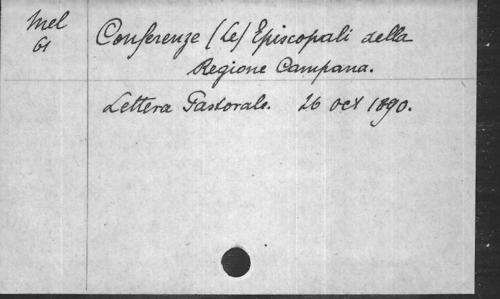 Mel
61
Conferenze (Le) Episcopali della
Regione Campana.
Lettera Pastorale. 26 Oct 1890.